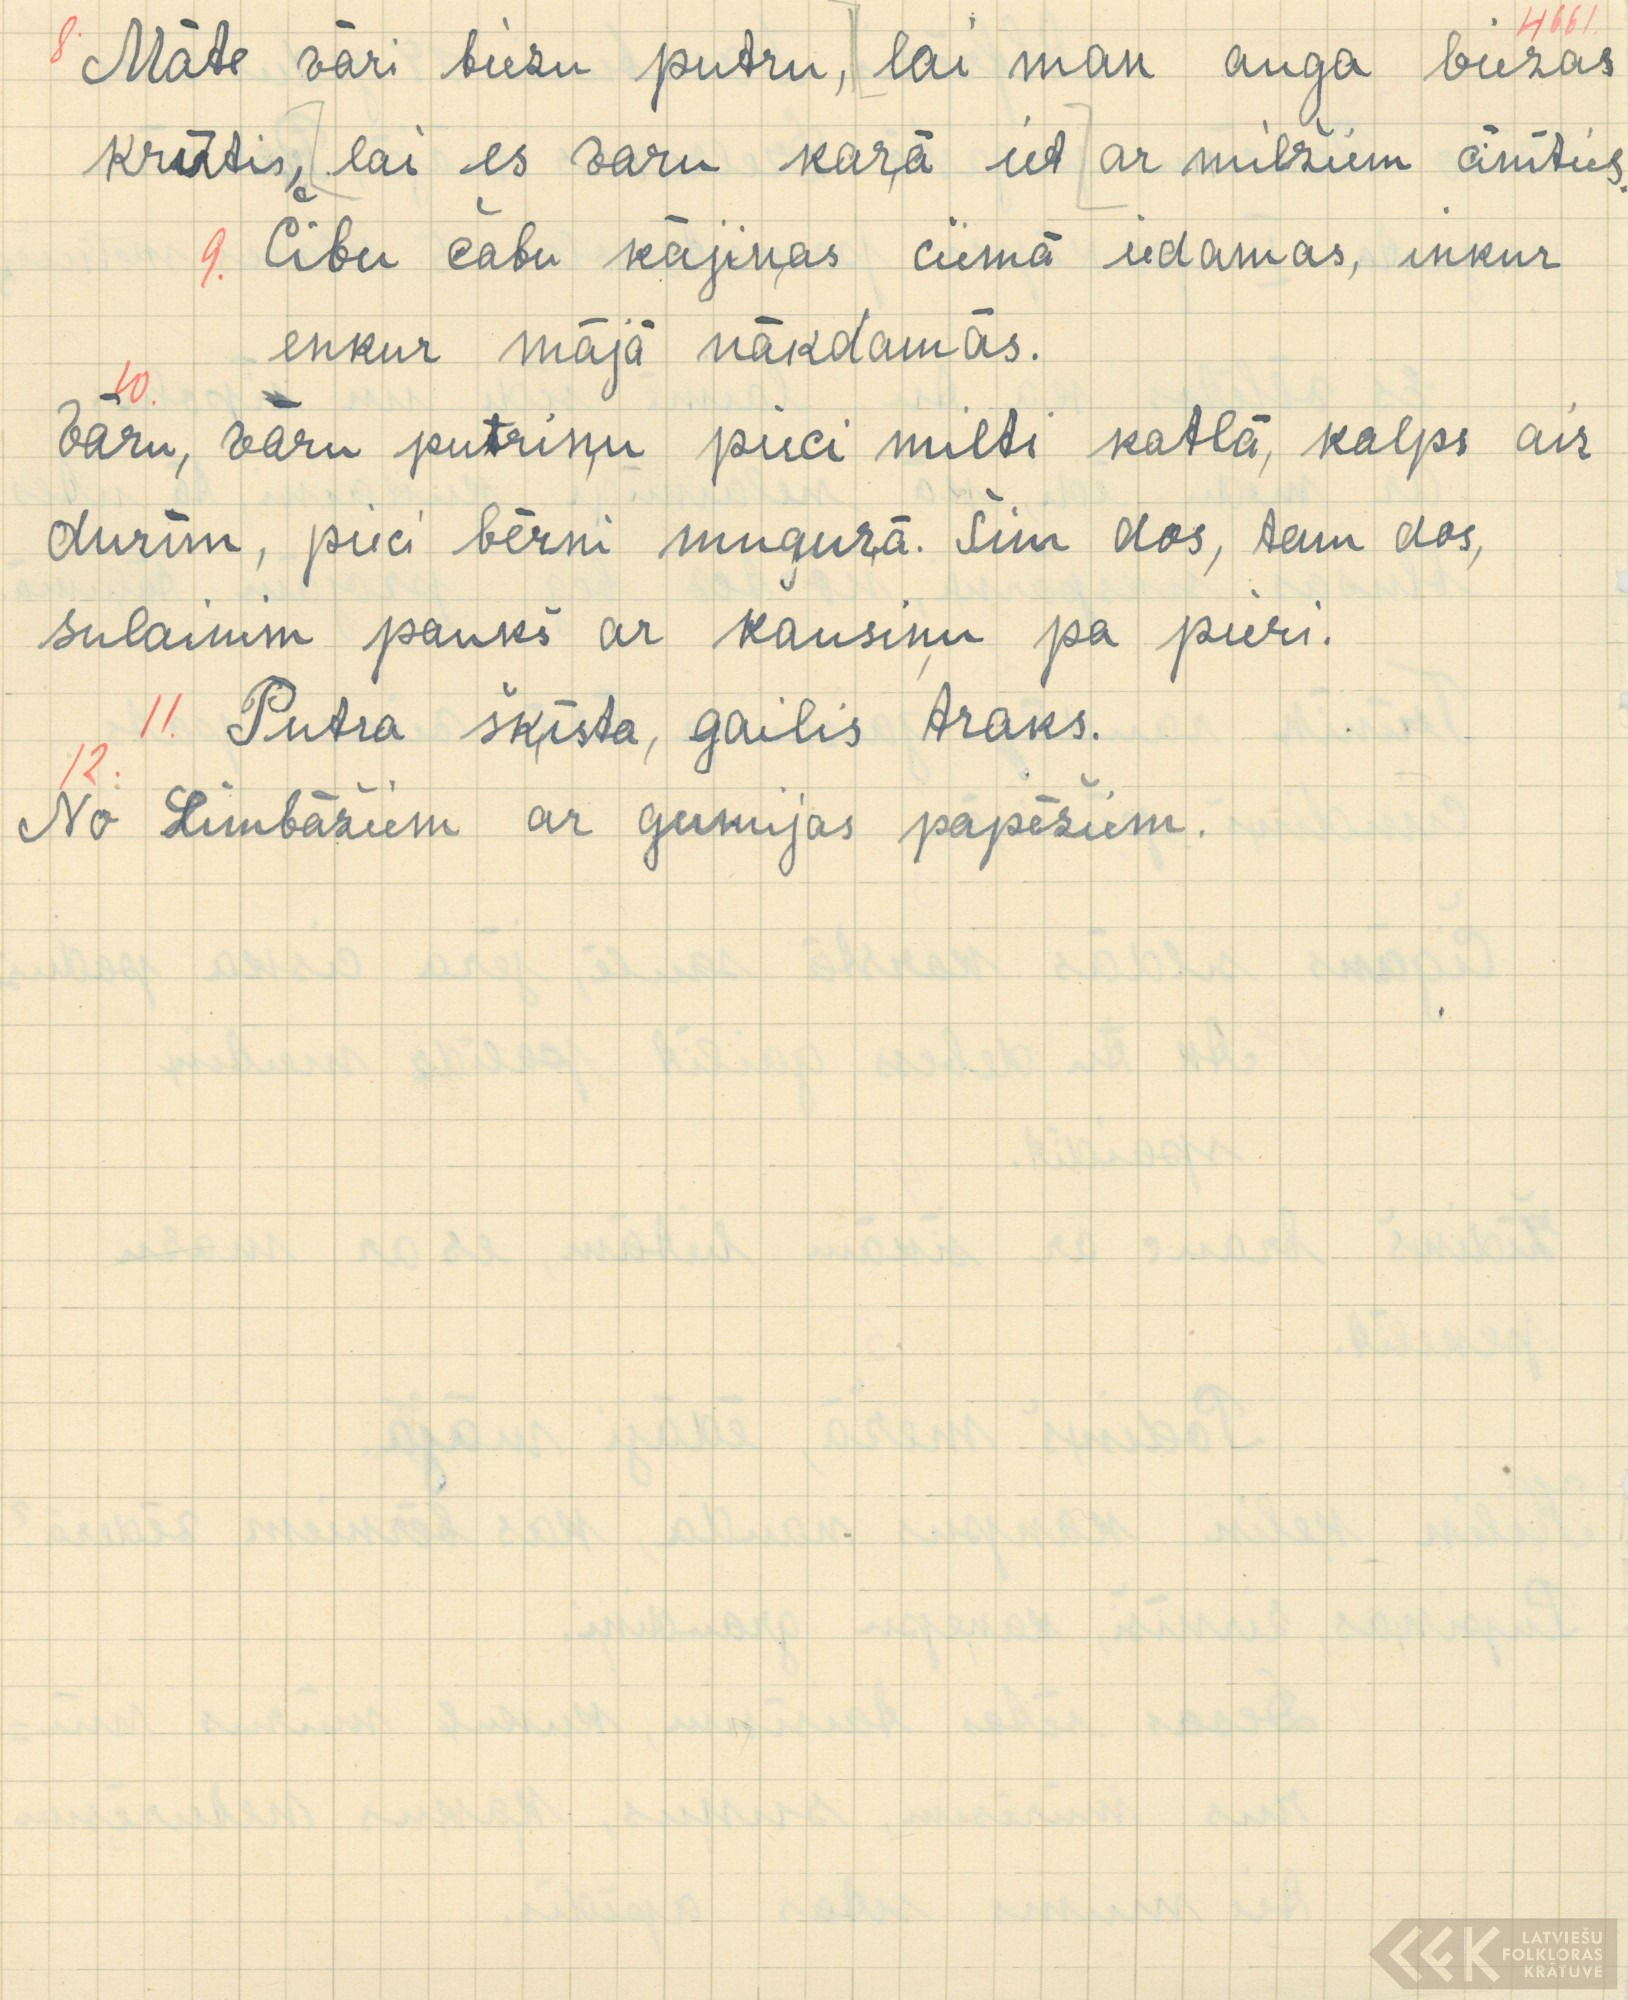 4661.
8. Māte vāri biezu putru, [lai man auga biezas
krūtis, [lai es varu kaŗā iet [ar milžiem cīnīties.
9. Čibu čabu kājiņas ciemā iedamas, inkur
enkur mājā nākdamās.
10.
Vāru, vāru putriņu pieci milti katlā, kalps aiz
durīm, pieci bērni mugurā. Šim dos, tam dos,
sulainim paukš ar kausiņu pa pieri.
11. Putra šķīsta, gailis traks.
12.
No Limbāžiem ar gumijas papēžiem.
LATVIEŠU
FOLKLORAS
KRĀTUVE